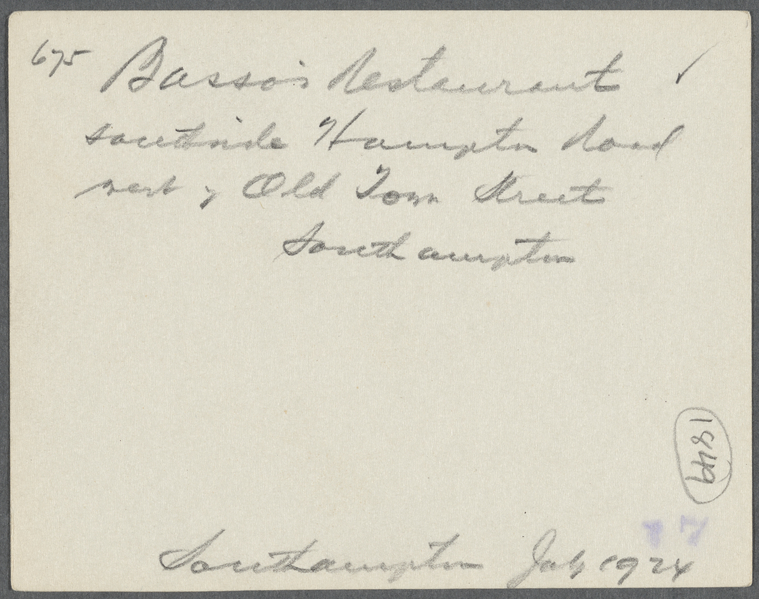 675 Basso's Restaurant ✓
southside Hampton Road
west of Old Town Street
Southampton
1849
17
Southampton July 1924